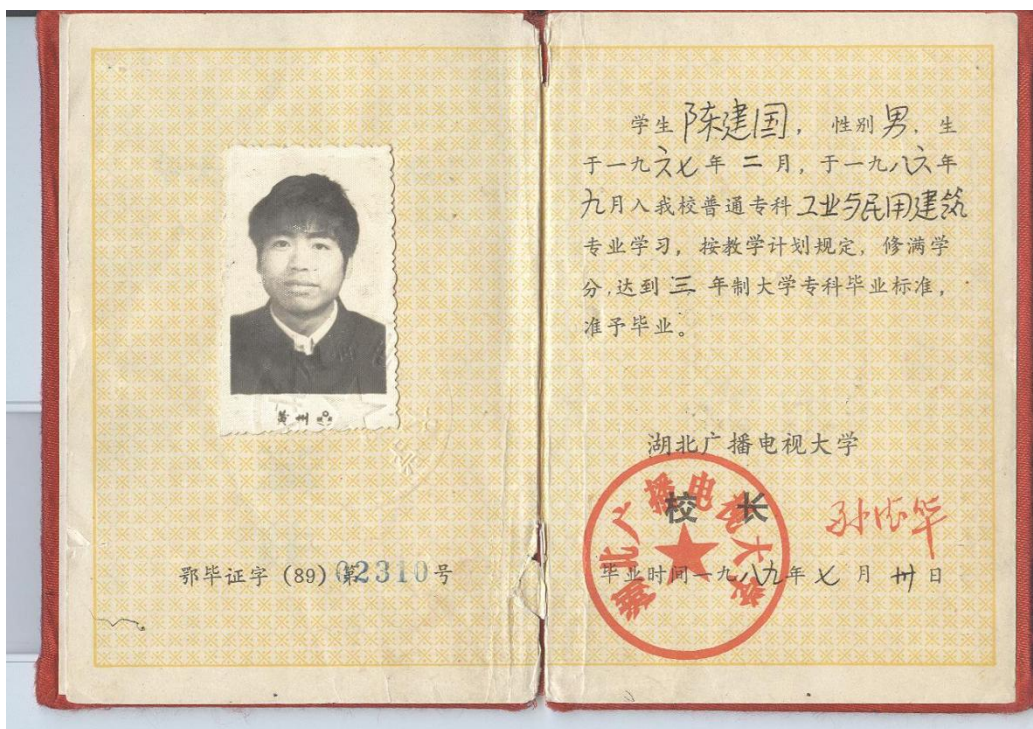 黄州
鄂毕证字(89)第02310号
学生陈建国,性别男,生
于一九六七年二月,于一九八六年
九月入我校普通专科工业与民用建筑
专业学习,按教学计划规定,修满学
分,达到三年制大学专科毕业标准,
准予毕业。
湖北广播电视大学
校长
湖北广播电视大学
毕业时间一九八九年七月卅日